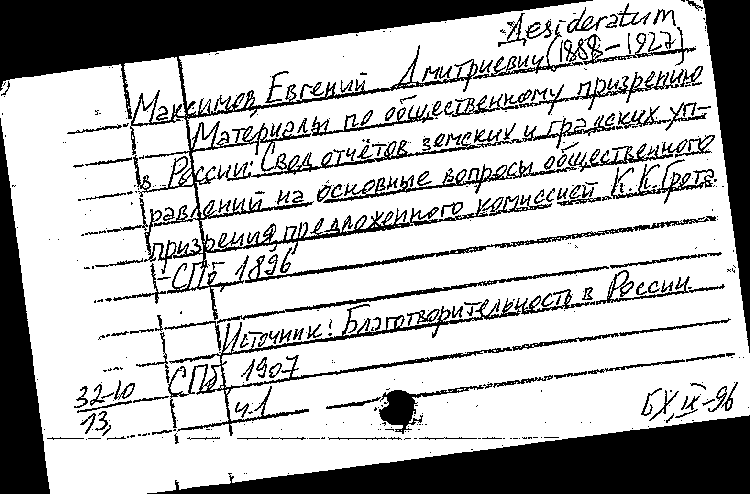 Desideratum
Максимов, Евгений Дмитриевич (1888-1927)
Материалы по общественному призрению
в России: Свод отчётов земских и градских уп-
равлений на основные вопросы общественного
призрения, предложенного комиссией К.К.Грота.
-СПб, 1896
Источник: Благотворительность в России.
СПб, 1907
ч.1
32-10
13,
БХ, IX-96